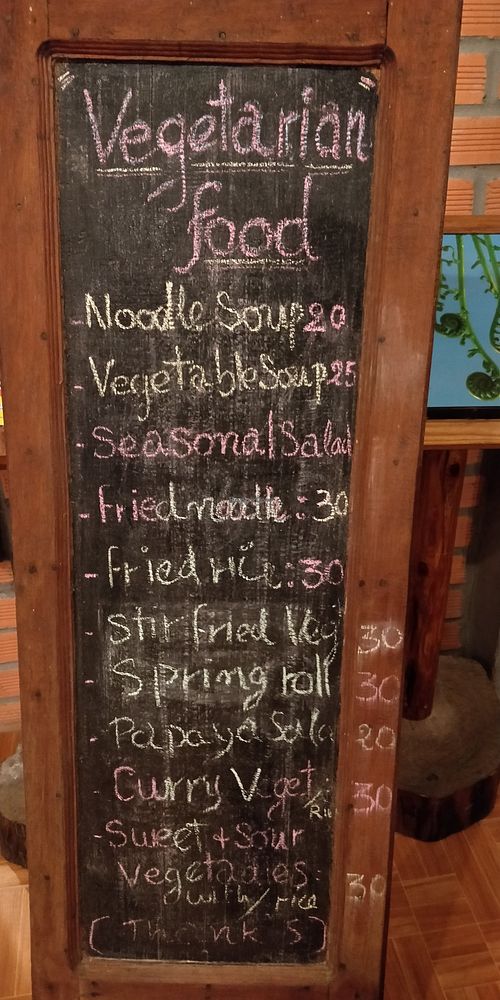 Vegetarian
food
- Noodle Soup 20
- Vegetable Soup 25
- Seasonal Salad
- Fried noodle : 30
- Fried rice : 30
- Stir fried Veg 30
- Spring roll 30
- Papaya Sala 20
- Curry Veget /Ric 30
- Sweet + Sour
Vegetables
with/rice 30
( Thank S )